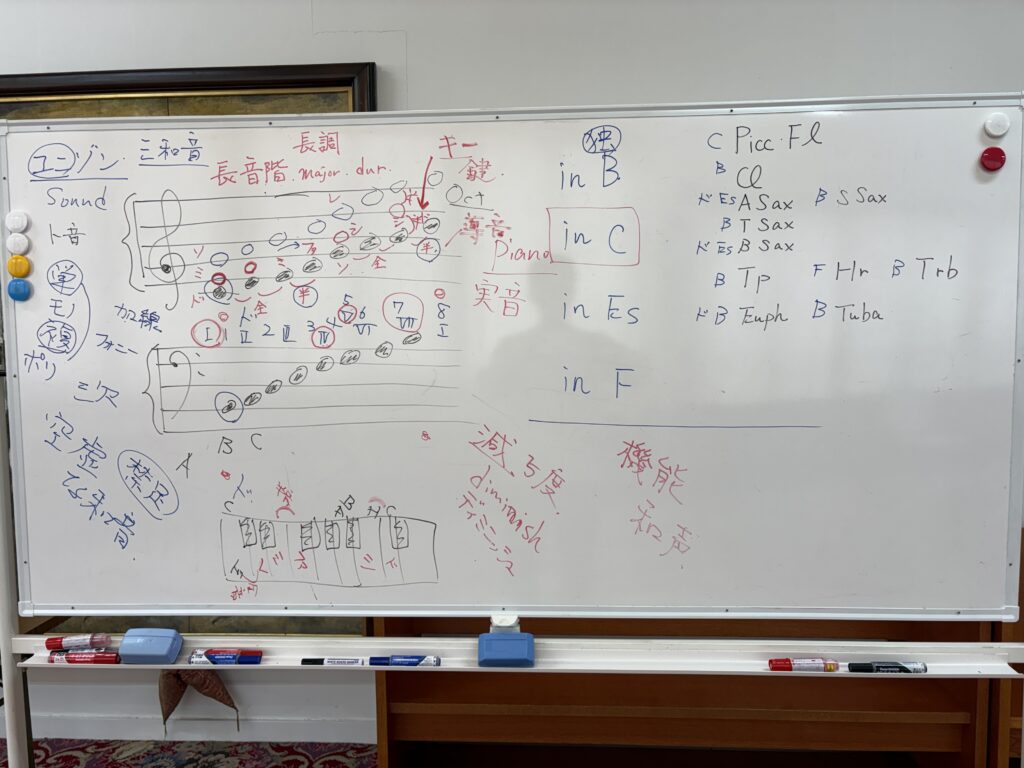 ユニゾン. 三和音
Sound
ト音
単
モノ
複
ポリ
フォニー
加線
長調
長音階. major. dur.
キー
鍵.
Oct
導音
Piano
実音
レ
ソ
ミ
ド
全
半
ソ
全
シ
半.
ド
I 1 II 2 III 3 IV 4 5 6 VI 7 VII 8 I
空虚
な和音.
禁足
A B C
ド
C
B
C
ミ
シ
ド
減5度
diminish
ディミニッシュ
機能
和声
独
in B
in C
in Es
in F
C Picc. Fl
B Cl
ド Es A Sax B S Sax
B T Sax
ド Es B Sax
B Tp F Hr B Trb
ド B Euph B Tuba